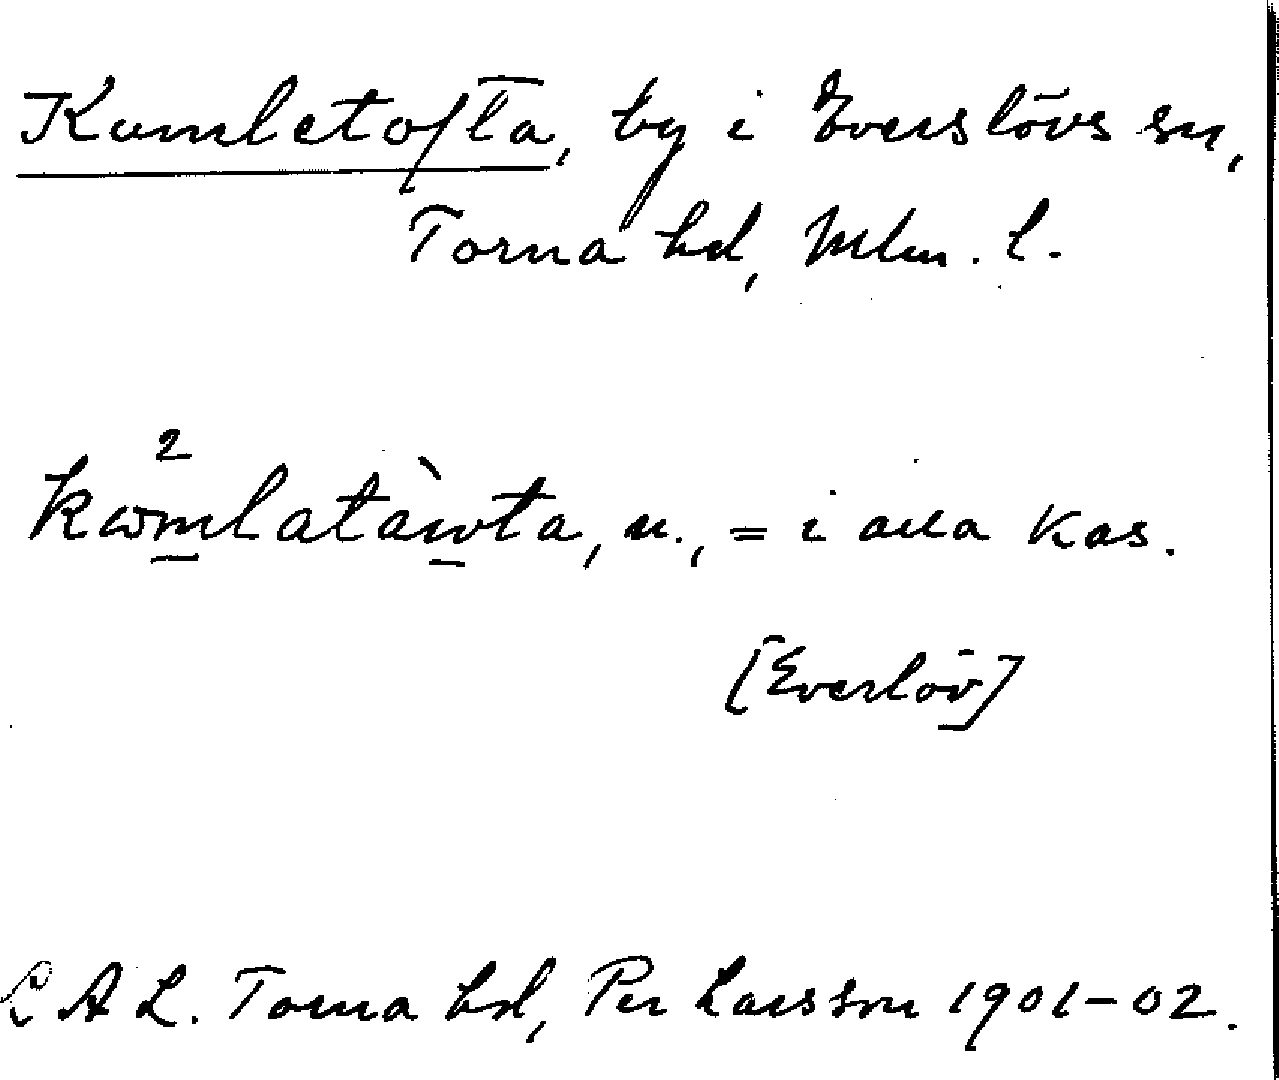 Kumletofta, by i Everslövs sn,
Torna hd, Mlm. l.
2
kωmlatàwta, n., = i alla kas.
[Everlöv]
L A L. Torna hd, Per Larsson 1901-02.